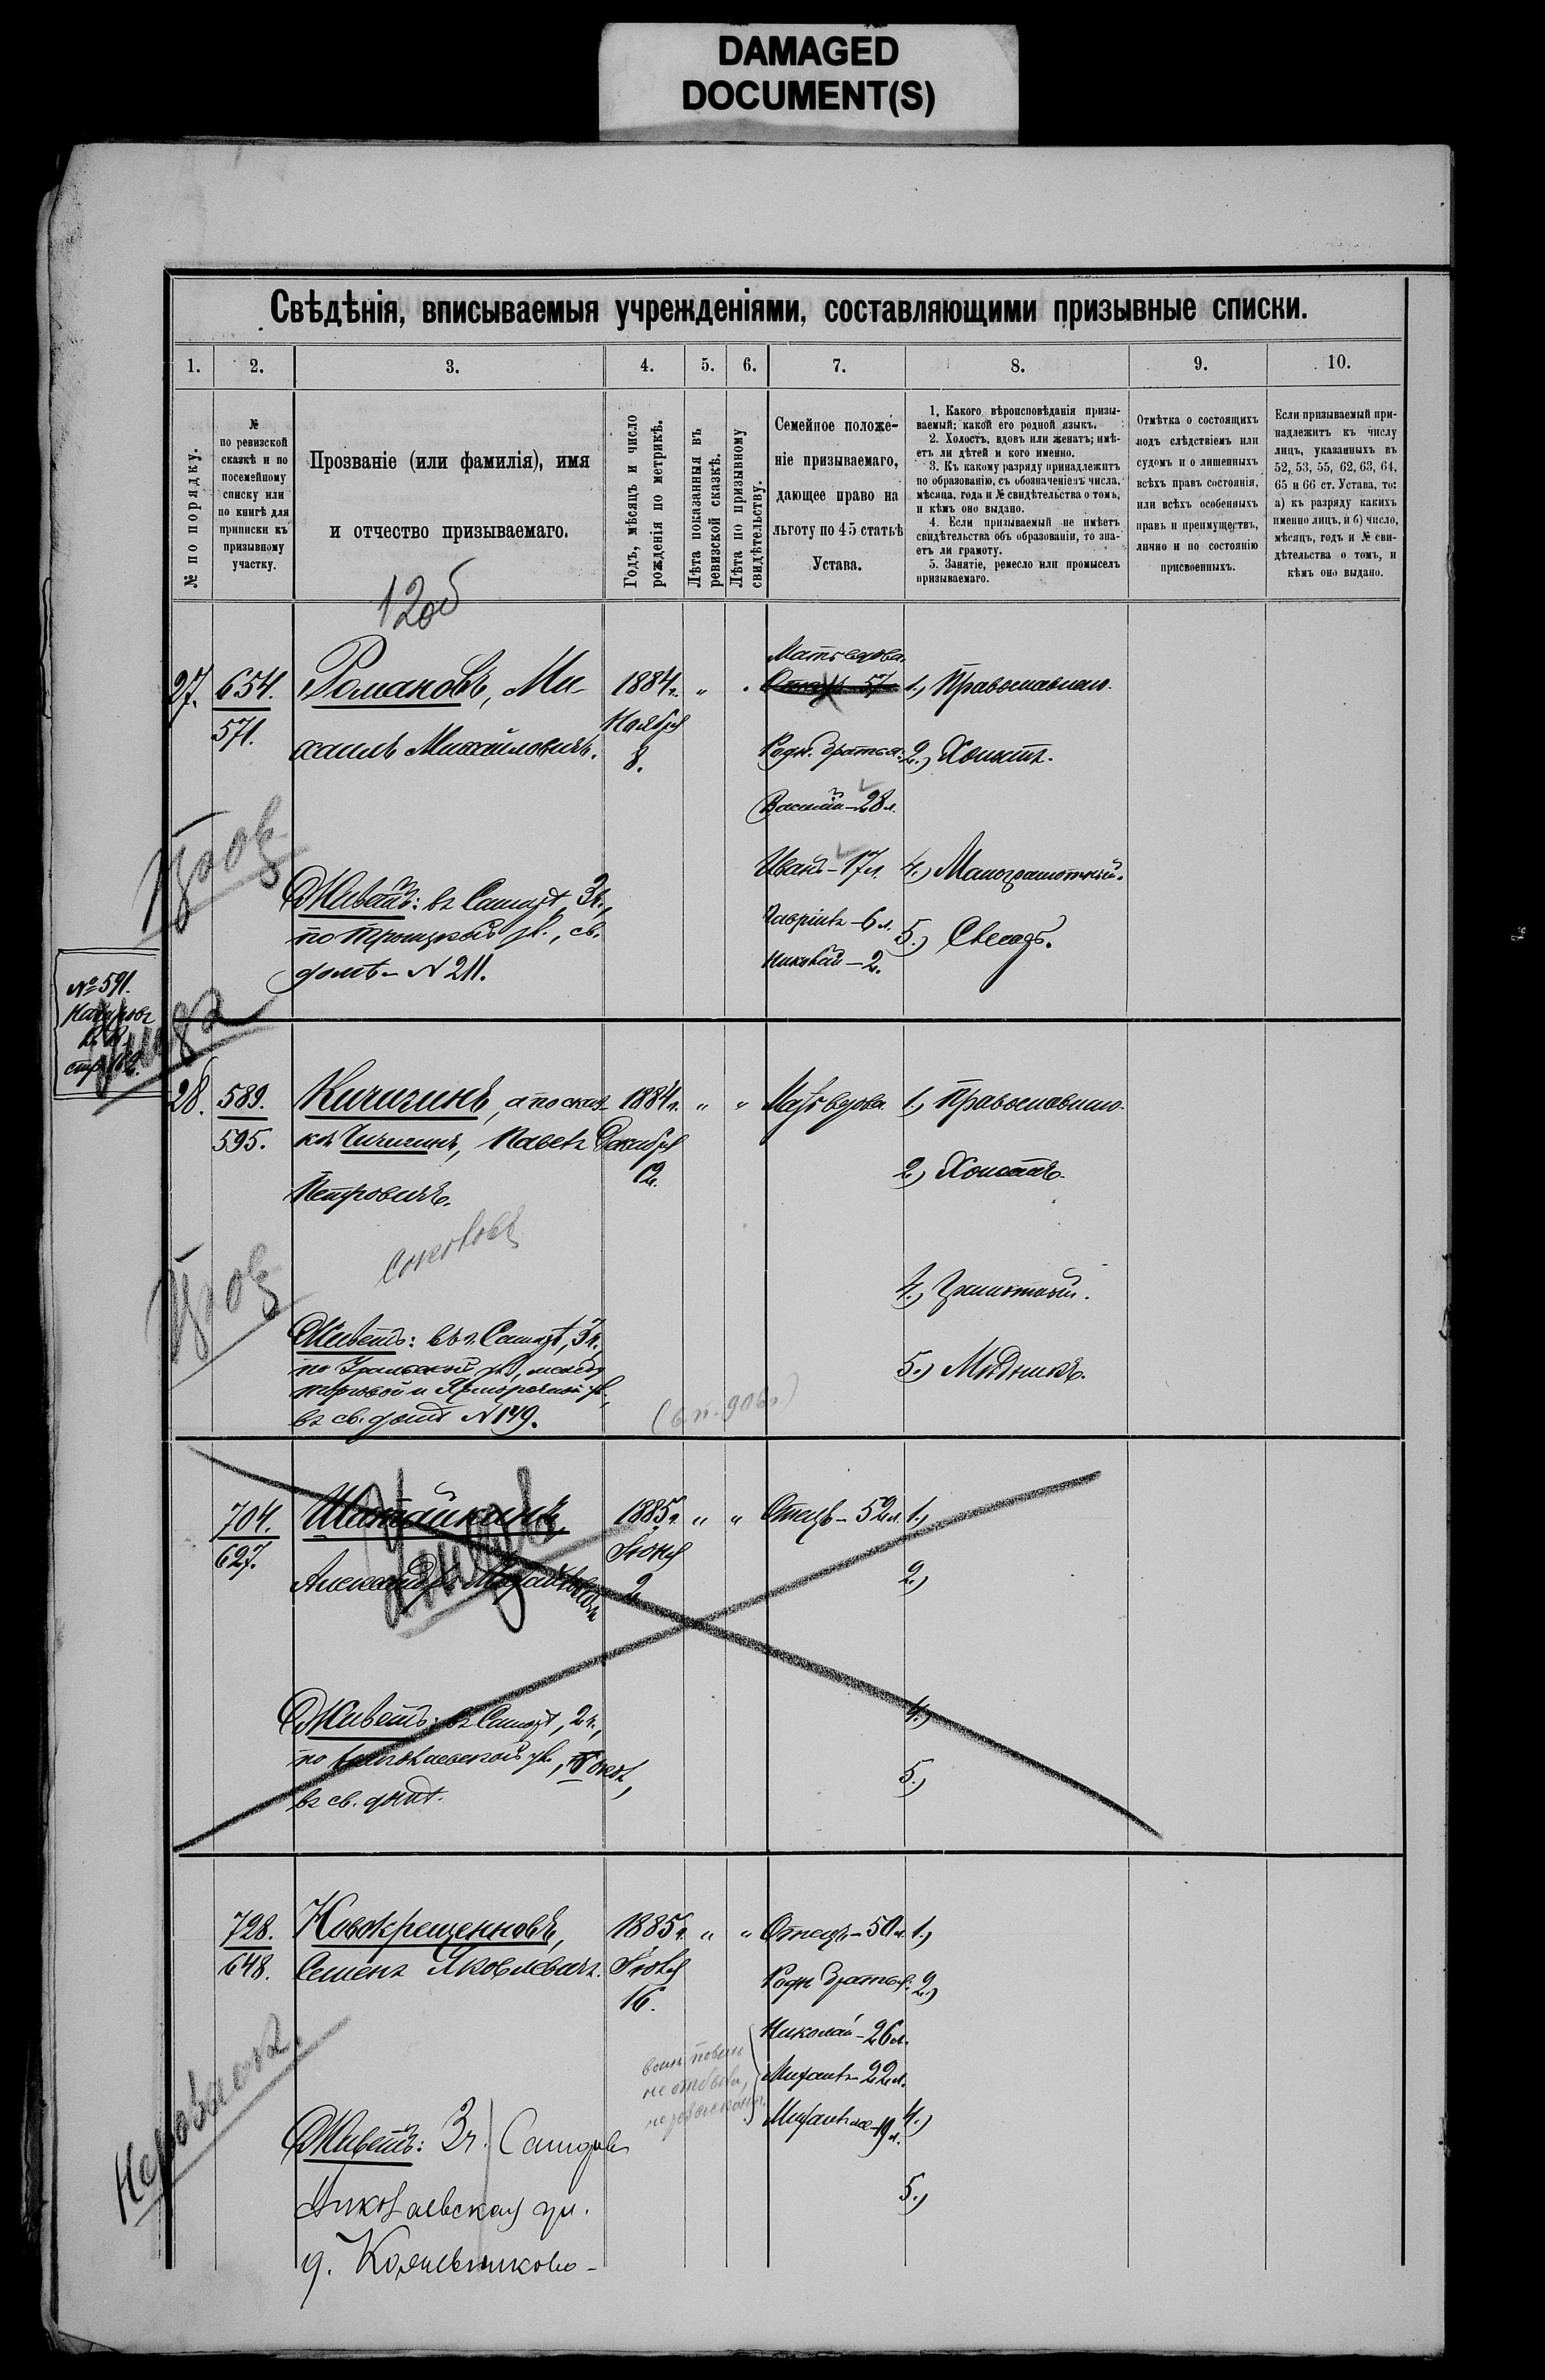 DAMAGED
DOCUMENT(S)
Свѣдѣнія, вписываемыя учрежденіями, составляющими призывные списки.
1.
2.
3.
4.
5.
6.
7.
8.
9.
10.
№ по порядку.
№
по ревизской
сказкѣ и по
посемейному
списку или
по книгѣ для
приписки къ
призывному
участку.
Прозваніе (или фамилія), имя
и отчество призываемаго.
Годъ, мѣсяцъ и число
рожденія по метрикѣ.
Лѣта показанныя въ
ревизской сказкѣ.
Лѣта по призывному
свидѣтельству.
Семейное положе-
ніе призываемаго,
дающее право на
льготу по 45 статьѣ
Устава.
1. Какого вѣроисповѣданія призы-
ваемый; какой его родной языкъ.
2. Холостъ, вдовъ или женатъ; имѣ-
етъ ли дѣтей и кого именно.
3. Къ какому разряду принадлежитъ
по образованію, съ обозначеніемъ числа,
мѣсяца, года и № свидѣтельства о томъ,
и кѣмъ оно выдано.
4. Если призываемый не имѣетъ
свидѣтельства объ образованіи, то зна-
етъ ли грамоту.
5. Занятіе, ремесло или промыселъ
призываемаго.
Отмѣтка о состоящихъ
подъ слѣдствіемъ или
судомъ и о лишенныхъ
всѣхъ правъ состоянія,
или всѣхъ особенныхъ
правъ и преимуществъ,
лично и по состоянію
присвоенныхъ.
Если призываемый при-
надлежитъ къ числу
лицъ, указанныхъ въ
52, 53, 55, 62, 63, 64,
65 и 66 ст. Устава, то:
а) къ разряду какихъ
именно лицъ, и б) число,
мѣсяцъ, годъ и № сви-
дѣтельства о томъ, и
кѣмъ оно выдано.
12об
27.
654.
571.
Романовъ, Ми-
хаилъ Михайловичъ.
1884 г.
Ноября
8.
"
Мать вдова.
Отецъ 57
Родн. братья:
Василій - 28 л.
Иванъ - 17 л.
Гавріилъ - 6 л.
Николай - 2.
1.) Православнаго.
2.) Холостъ.
4.) Малограмотный.
5.) Слесарь.
Живетъ: въ Самарѣ, 3 ч.,
по Троицкой ул., св.
домъ - N 211.
№ 591.
28.
589.
595.
Кичигинъ, а по сказ-
кѣ Чичигинъ, Павелъ
Петровичъ.
1884 г.
Декабря
12.
" "
Мать вдова
1.) Православнаго.
2.) Холостъ.
4.) Грамотный.
5.) Мѣдникъ.
Живетъ: въ г. Самарѣ, 3 ч.,
по Уральской ул., между
Торговой и Ярморочной ул.,
въ св. домѣ N 149.
704.
627.
Шатайкинъ,
Александръ
1885 г.
Іюня
2
" "
Отецъ - 52 л.
1.)
2.)
4.)
5.)
Живетъ: въ Самарѣ, 2 ч.,
по ул.,
въ св. домѣ.
728.
648.
Новокрещенновъ,
Семенъ Яковлевичъ.
1885 г.
Іюля
16.
" "
Отецъ - 50 л.
Родн братья:
Николай - 26 л.
Михаилъ - 22 л.
Михаилъ же - 19 л.
1.)
2.)
4.)
5.)
воин повин
не отбыв,
Живетъ: 3 ч. Самара
Николаевская ул.
д. Кожевниково -